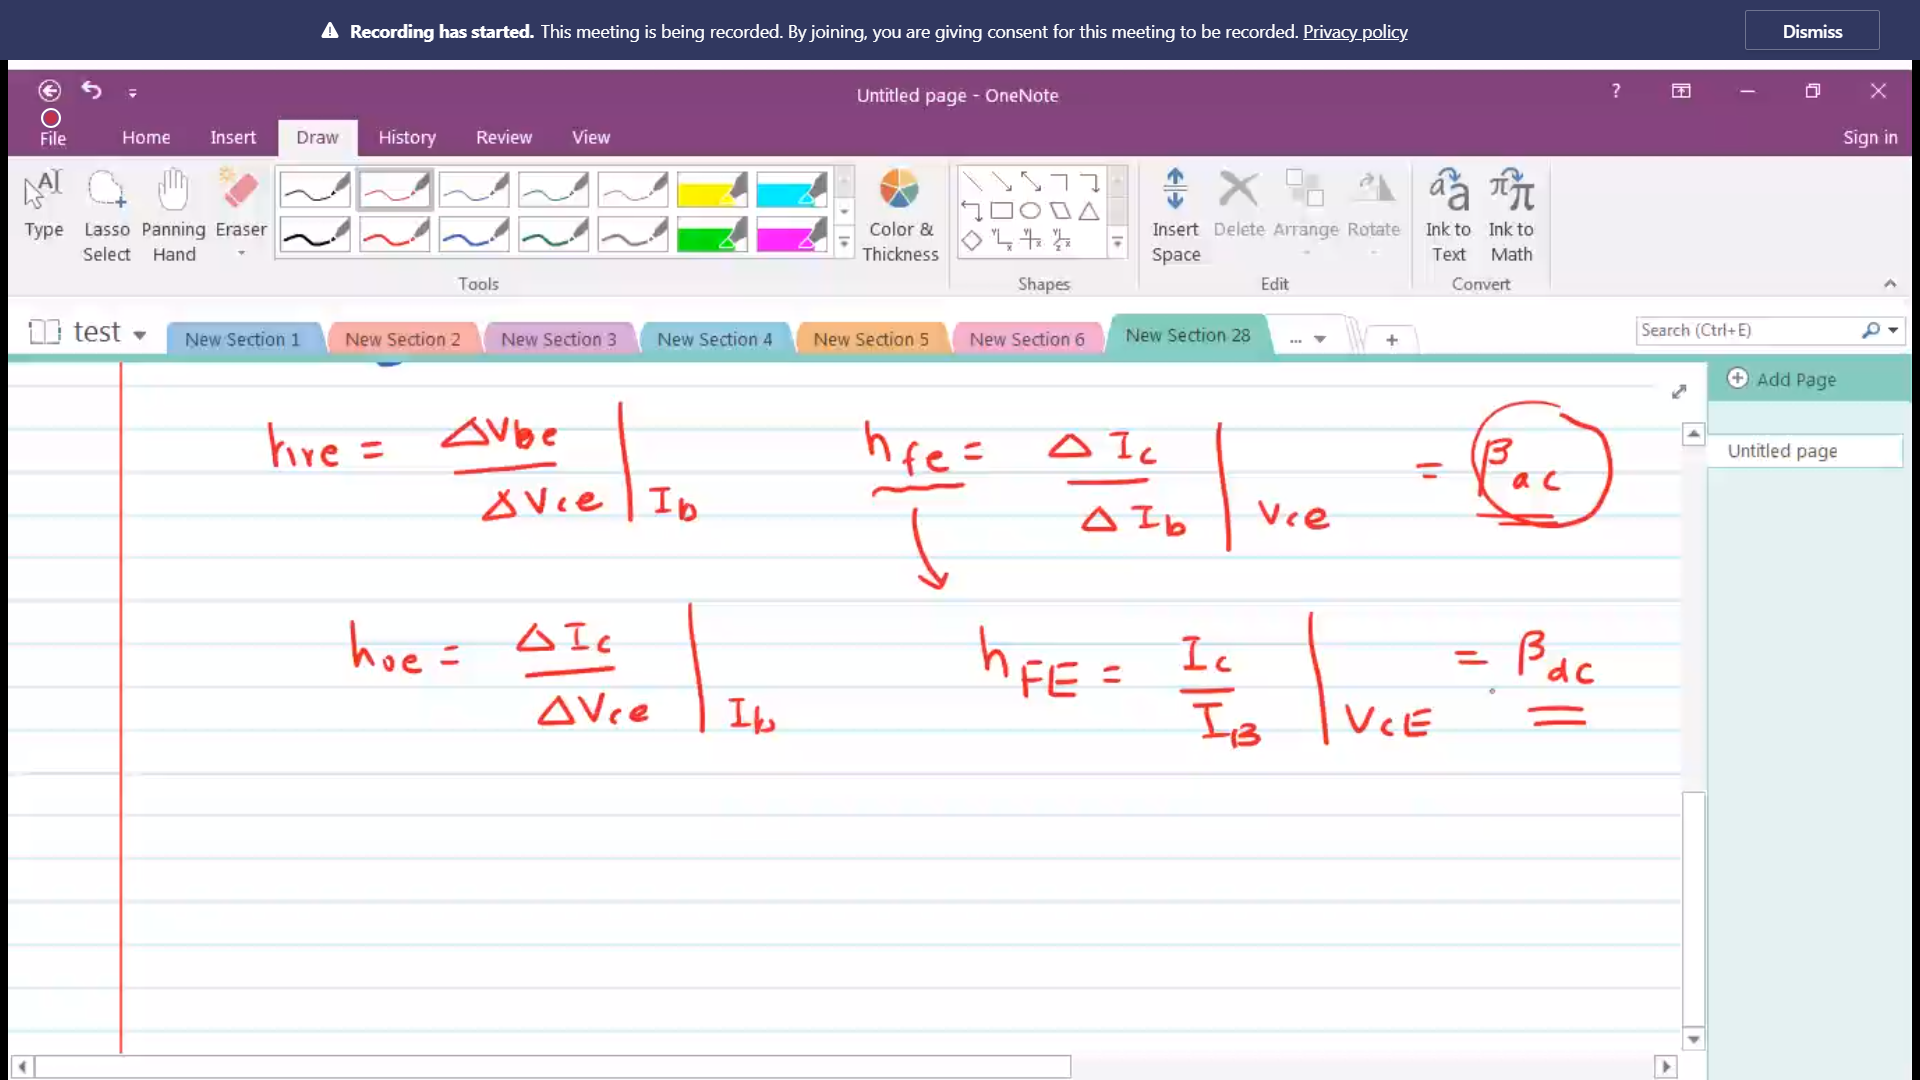 Recording has started. This meeting is being recorded. By joining, you are giving consent for this meeting to be recorded. Privacy policy
Dismiss
Untitled page - OneNote
?
File
Home
Insert
Draw
History
Review
View
Sign in
Type
Lasso Select
Panning Hand
Eraser
Color & Thickness
Insert Space
Delete
Arrange
Rotate
Ink to Text
Ink to Math
Tools
Shapes
Edit
Convert
test
New Section 1
New Section 2
New Section 3
New Section 4
New Section 5
New Section 6
New Section 28
...
+
Search (Ctrl+E)
Add Page
Untitled page
hre = ΔVbe / ΔVce | Ib
hfe = ΔIc / ΔIb | Vce = βac
hoe = ΔIc / ΔVce | Ib
hFE = Ic / IB | VCE = βdc